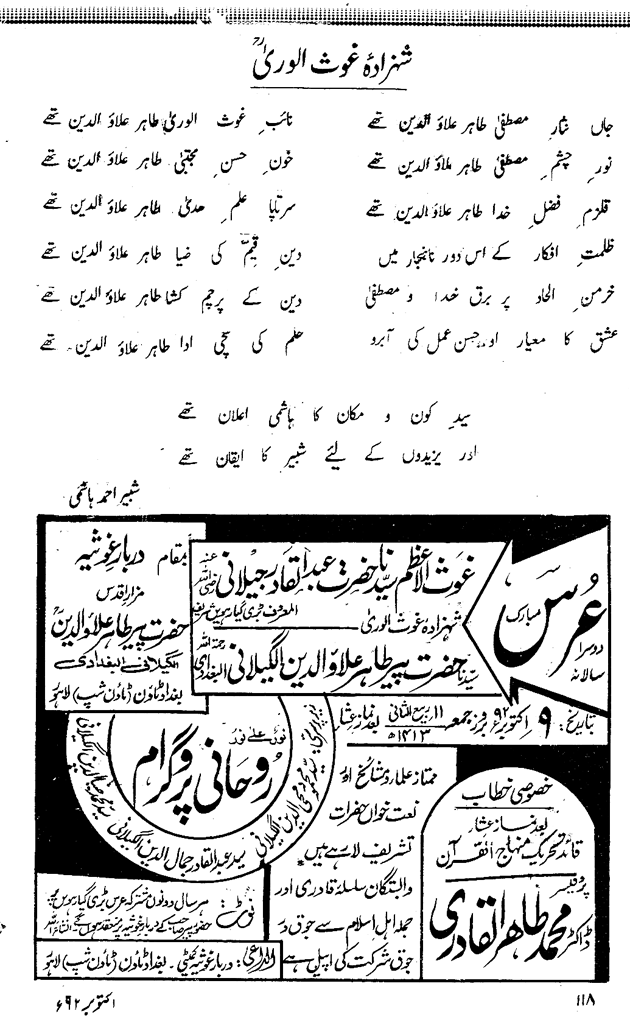 شہزادۂ غوث الوریٰؒ
جاں نثارِ مصطفیٰ طاہر علاؤ الدین تھے
نائبِ غوث الوریٰ طاہر علاؤ الدین تھے
نورِ چشمِ مصطفیٰ طاہر علاؤ الدین تھے
خونِ حسنِ مجتبیٰ طاہر علاؤ الدین تھے
قلزمِ فضلِ خدا طاہر علاؤ الدین تھے
سرتاپا علمِ ھدیٰ طاہر علاؤ الدین تھے
ظلمتِ افکار کے اس دور ناہنجار میں
دینِ قیمؐ کی ضیا طاہر علاؤ الدین تھے
خرمنِ الحاد پر برق خدا و مصطفیٰ
دین کے پرچم کشا طاہر علاؤ الدین تھے
عشق کا معیار اور حسن عمل کی آبرو
حلم کی سچی ادا طاہر علاؤ الدین تھے
سیدِ کون و مکان کا ہاشمی اعلان تھے
اور یزیدوں کے لیئے شبیر کا ایقان تھے
شبیر احمد ہاشمی
عرس مبارک
دوسرا
سالانہ
غوث الاعظم سیدنا حضرت عبدالقادر جیلانی رضی اللہ عنہ
المعروف بڑی گیارہویں شریف
شہزادہ غوث الوریٰ
سیدنا حضرت پیر طاہر علاؤ الدین الگیلانی البغدادی رحمۃ اللہ
بمقام دربار غوثیہ
مزار اقدس
حضرت پیر طاہر علاؤ الدینؒ
الگیلانی البغدادی
بغداد ٹاؤن (ٹاؤن شپ) لاہور
تاریخ: ۹ اکتوبر ۹۲ بروز جمعہ ۱۱ ربیع الثانی ۱۴۱۳ھ بعد نماز عشاء
نورٌ علیٰ نور
روحانی پروگرام
سید محمود محی الدین الگیلانی
سید عبدالقادر جمال الدین الگیلانی
سید محمد ضیاء الدین الگیلانی
ممتاز علماء و مشائخ اور
نعت خوان حضرات
تشریف لا رہے ہیں
وابستگان سلسلہ قادری اور
جملہ اہل اسلام سے جوق در
جوق شرکت کی اپیل ہے
خصوصی خطاب
بعد نماز عشاء
قائد تحریک منہاج القرآن
پروفیسر
ڈاکٹر محمد طاہر القادری
نوٹ: ہر سال دونوں مشترکہ عرس بڑی گیارہویں
حضور پیر صاحب کے دربار غوثیہ پر منعقد ہوں گے انشاء اللہ
الداعی: دربار غوثیہ کمیٹی۔ بغداد ٹاؤن (ٹاؤن شپ) لاہور
۱۱۸
اکتوبر ۹۲ء